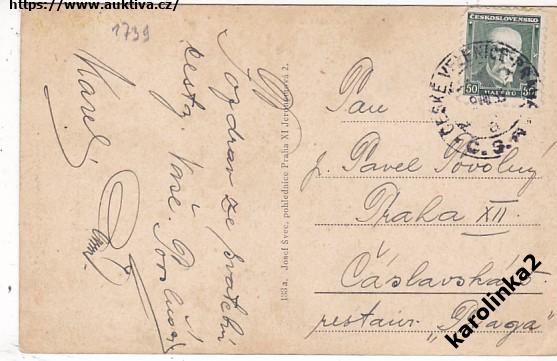 https://www.auktiva.cz/
1739
Pozdrav ze svatební
cesty. Vaše
Karel
133a. Josef Švec, pohlednice Praha XI Jeronýmova 2.
ČESKOSLOVENSKO
50 HALÉŘŮ 50
ČESKÉ VELENICE-PRAHA
Č.S.R.
Pan
p. Pavel Povolný
Praha XII.
Čáslavská
restaur. "Praga"
karolinka2